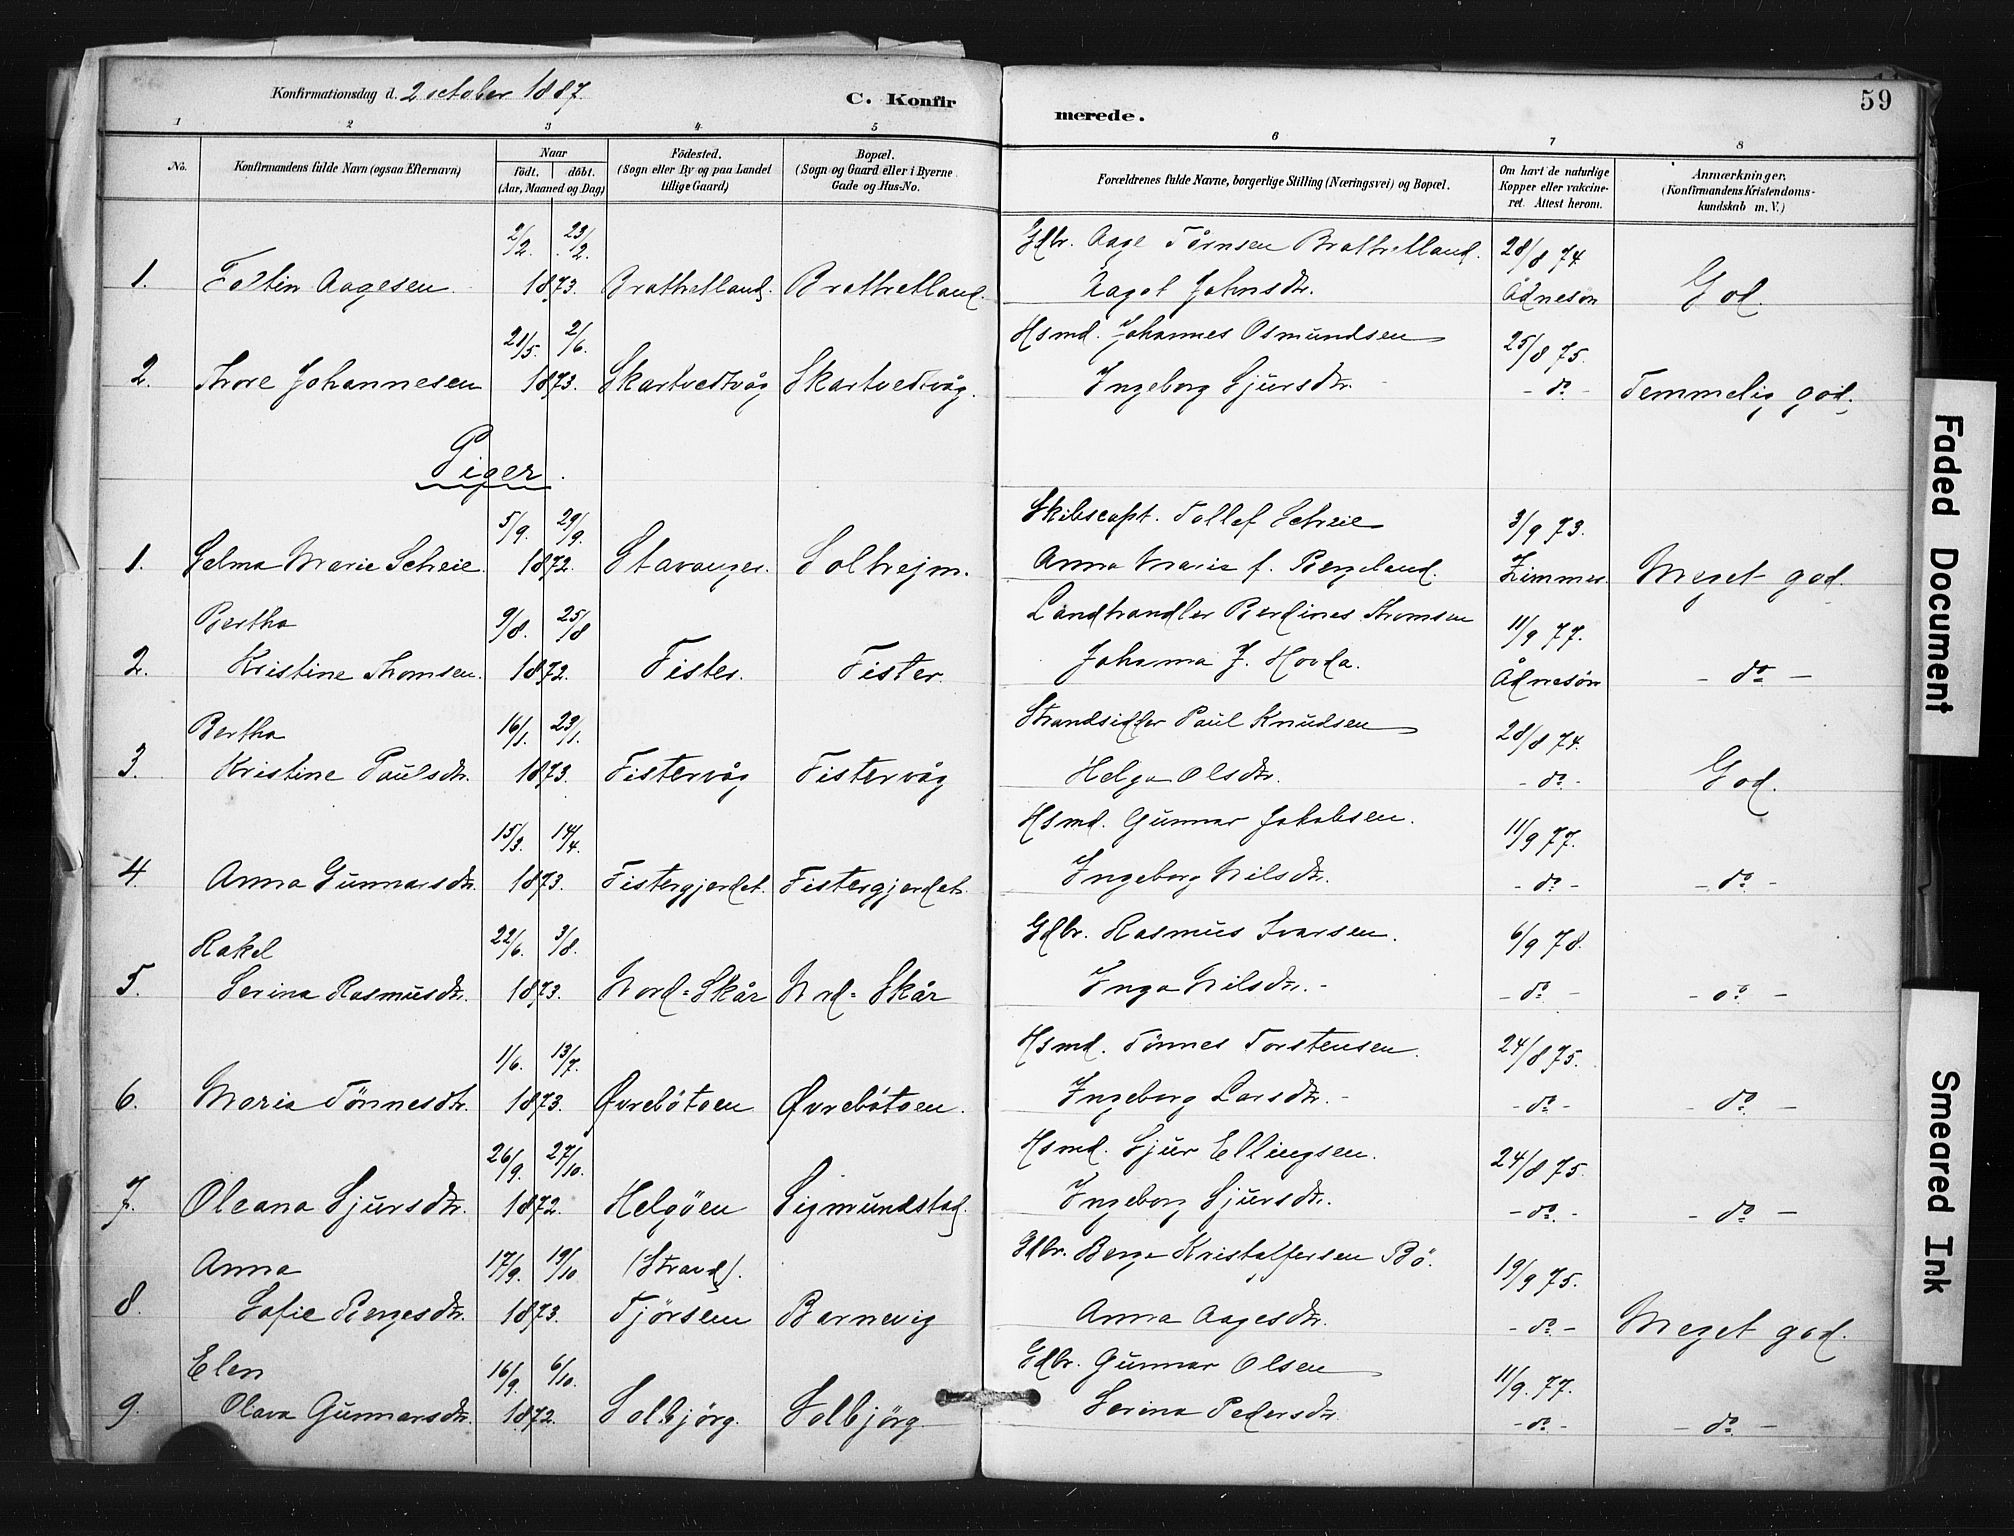 Konfirmationsdag d. 2 october 1887.
C. Konfirmerede.
59
1 2 3 4 5 6 7 8
No.
Konfirmandens fulde Navn (ogsaa Efternavn)
Naar
födt. döbt.
(Aar, Maaned og Dag)
Födested.
(Sogn eller By og paa Landet
tillige Gaard)
Bopæl.
(Sogn og Gaard eller i Byerne
Gade og Hus-No.
Forældrenes fulde Navne, borgerlige Stilling (Næringsvei) og Bopæl.
Om havt de naturlige
Kopper eller vakcine-
ret. Attest herom.
Anmærkninger.
(Konfirmandens Kristendoms-
kundskab m. V.)
2/2. 23/2. Gdbr. Aage Törnsen Brathetland. 28/8 74.
1. Tostin Aagesen 1873. Brathetland. Brathetland. Aagot Johnsdtr. Ådnesön God.
21/5. 2/6. Hsmd. Johannes Osmundsen 25/8 75.
2. Thore Johannesen 1873. Skartvedtvåg Skartvedtvåg. Ingeborg Sjursdtr. - do - Temmelig god.
Piger.
5/9. 29/9. Skibscapt. Tollef Scheie 3/9 73.
1. Selma Marie Scheie. 1872. Stavanger. Solhejm. Anna Marie f. Bergeland. Zimmer Meget god.
Bertha 9/8. 25/8 Landhandler Berdines Thomsen 11/9 77.
2. Kristine Thomsen. 1872. Fister. Fister. Johanna J. Hovda. Ådnesön - do -
Bertha 16/1. 23/1. Strandsidder Paul Knudsen 28/8 74.
3. Kristine Paulsdtr. 1873. Fistervåg Fistervåg Helga Olsdtr. - do - God.
15/3. 14/4. Hsmd. Gunnar Jakobsen. 11/9 77.
4. Anna Gunnarsdtr. 1873. Fistergjerdet. Fistergjerdet. Ingeborg Nilsdtr. - do - - do -
Rakel 22/6. 3/8. Gdbr. Rasmus Ivarsen. 6/9 78.
5. Serina Rasmusdtr. 1873. Nord=Skår Nrd=Skår Inga Nilsdtr. - - do - - do -
1/6. 13/7. Hsmd. Tönnes Torstensen. 24/8 75.
6. Maria Tönnesdtr. 1873. Øvrebötoen Øvrebötoen. Ingeborg Larsdtr. - - do - - do -
26/9. 27/10. Hsmd. Sjur Ellingsen. 24/8 75.
7. Oleana Sjursdtr. 1872. Helgöen Sigmundstad. Ingeborg Sjursdtr. - do - - do -
Anna 17/9. 19/10 (Strand). Gdbr. Berge Kristoffersen Bö. 19/9 75.
8. Sofie Bergesdtr. 1873. Tjörsem Barnevig Anna Aagesdtr. - do - Meget god.
Elen 16/9. 6/10. Gdbr. Gunnar Olsen 11/9. 77.
9. Olava Gunnarsdtr. 1872. Solbjörg. Solbjörg Serina Pedersdtr. - do - - do -
Faded Document
Smeared Ink